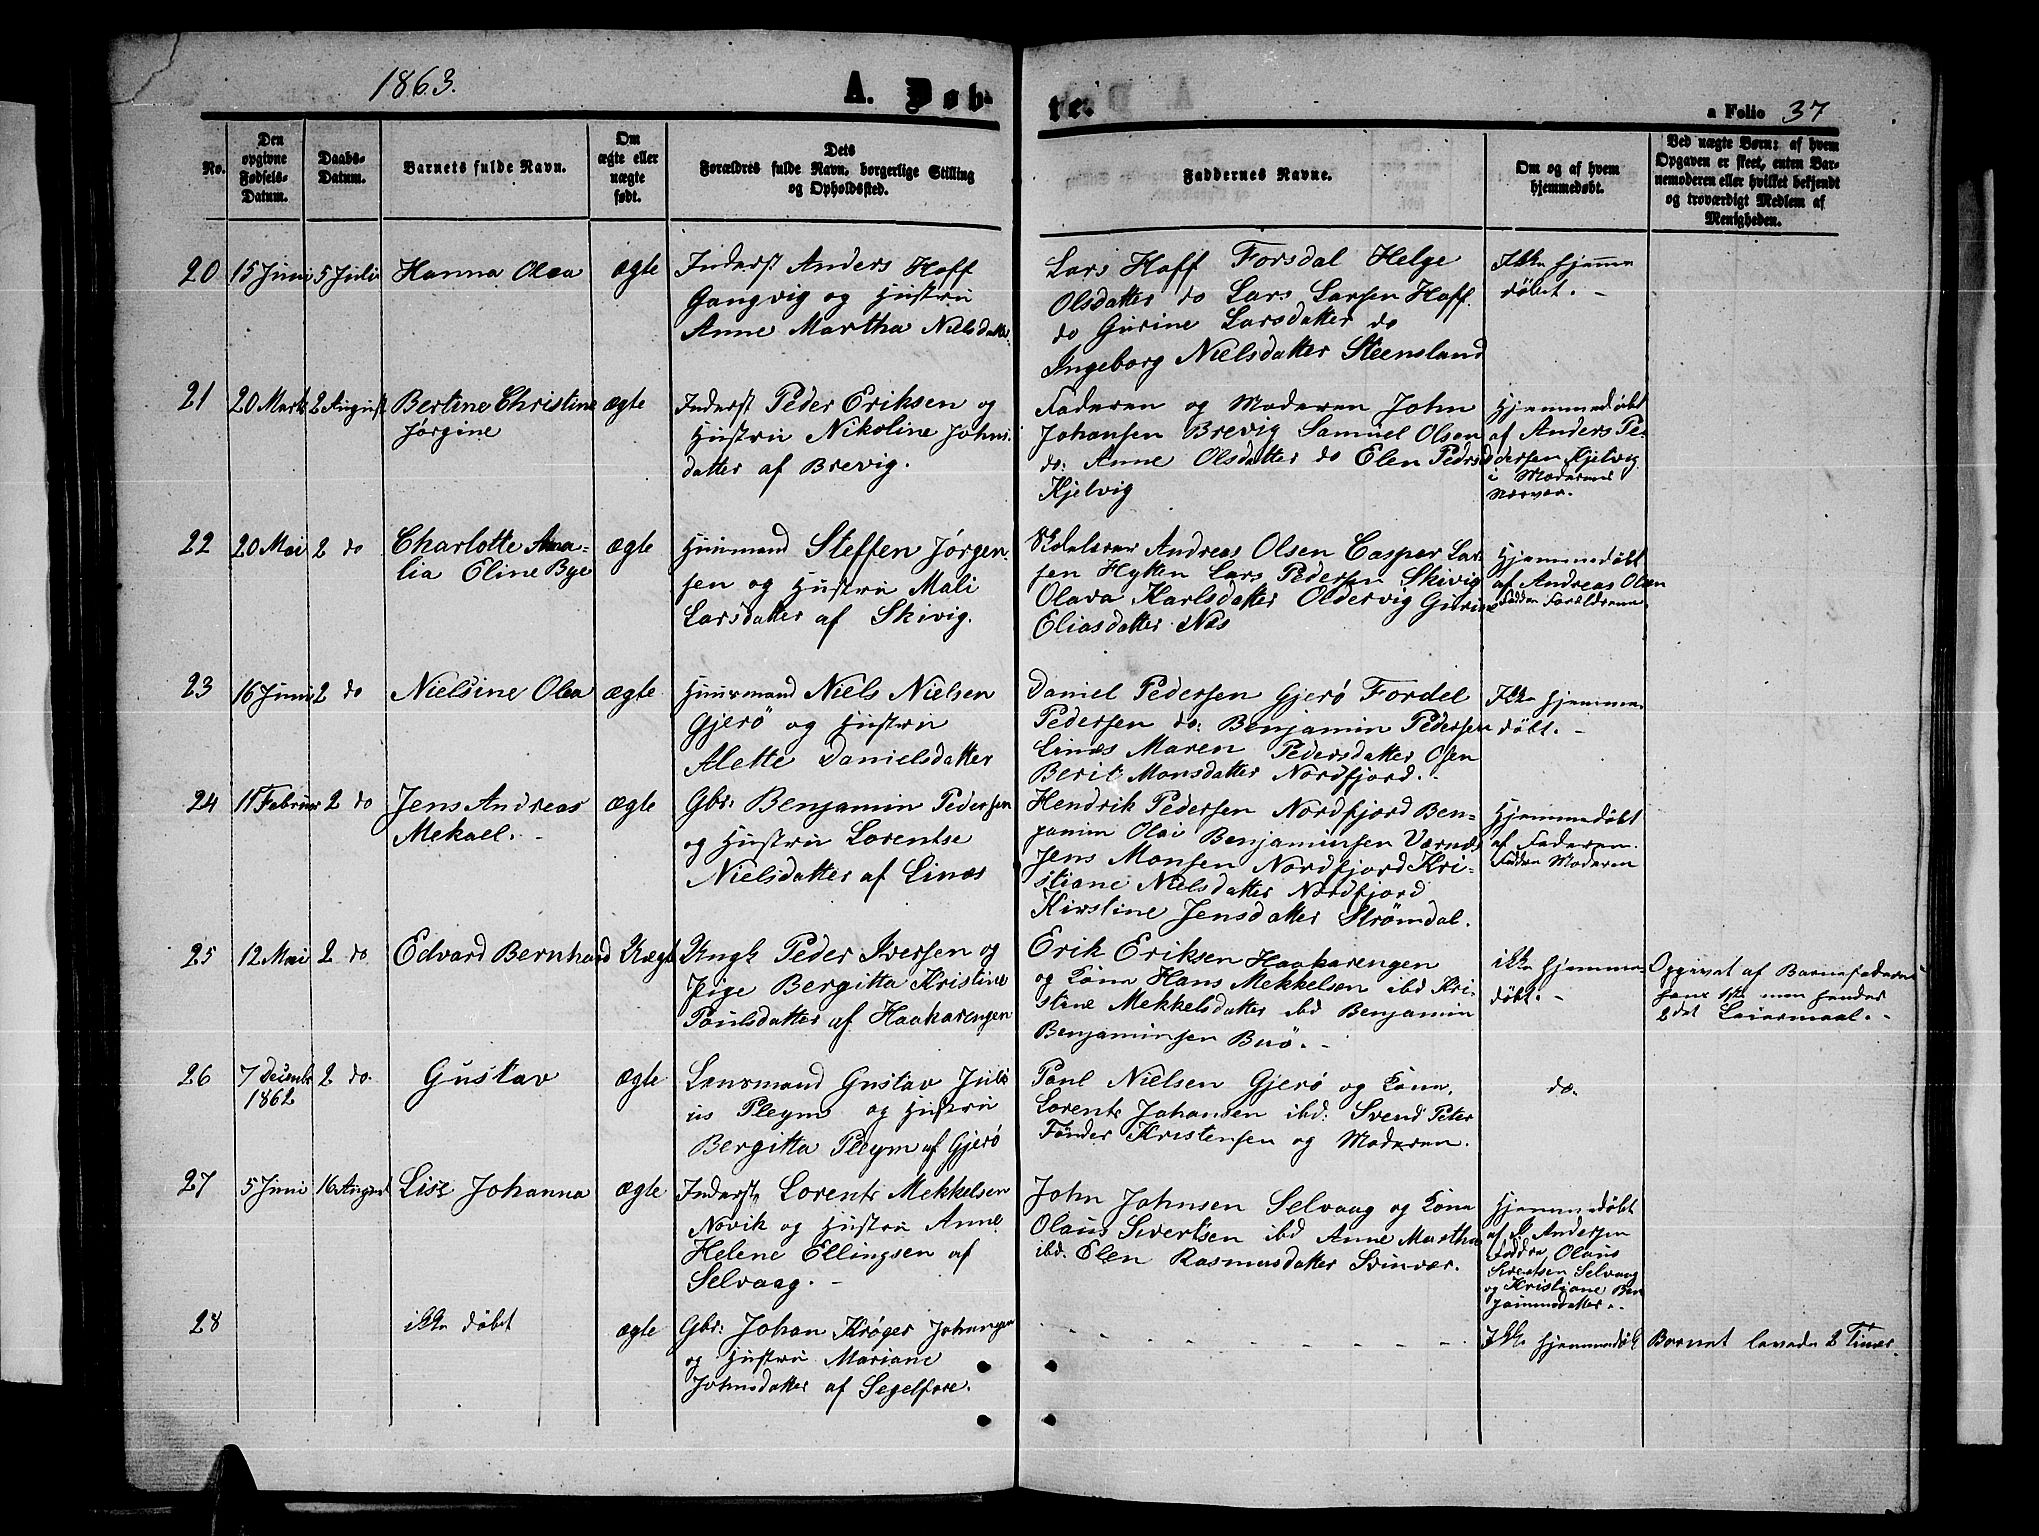 1863.
A. Døb-
te.
a Folio 37
No.
Den
opgivne
Fødsels-
Datum.
Daabs-
Datum.
Barnets fulde Navn.
Om
ægte eller
uægte
født.
Dets
Forældres fulde Navn, borgerlige Stilling
og Opholdssted.
Faddernes Navne.
Om og af hvem
hjemmedøbt.
Ved uægte Børn: af hvem
Opgaven er skeet, enten Bar-
nemoderen eller hvilket bekjendt
og troværdigt Medlem af
Menigheden.
20 15 Juni 5 Juli Hanna Olea ægte
Inderst Anders Hoff
Gangvig og Hustru
Anne Martha Nielsdatter
Lars Hoff Forsdal Helge
Olsdatter do Lars Larsen Hoff
do Gurine Larsdatter do
Ingeborg Nielsdatter Steensland
Ikke hjemme
døbt. -
21 20 Marts 2 August Bertine Christine ægte
Jørgine
Inderst Peder Eriksen og
Hustru Nikoline Johns
datter af Brevig.
Faderen og Moderen John
Johansen Brevig Samuel Olsen
do: Anne Olsdatter do Elen Pedersd
Kjelvig
Hjemmedøbt
af Anders Pe-
dersen Kjelvig
i Moderens
Nærvær.
22 20 Mai 2 do Charlotte Ama- ægte
lia Eline Bye
Huusmand Steffen Jørgen
sen og Hustru Mali
Larsdatter af Skivig.
Skolelærer Andreas Olsen Caspar Lar
sen Hytten Lars Pedersen Skivig
Olava Karlsdatter Oldervig Gurine
Eliasdatter Næs
Hjemmedøbt
af Andreas Olsen
Faddere Forældrene
23 16 Juni 2 do Nielsine Olea ægte
Huusmand Niels Nielsen
Gjerö og Hustru
Alette Danielsdatter
Daniel Pedersen Gjerö Fordel
Pedersen do: Benjamin Pedersen
Linæs Maren Pedersdatter Osen
Berit Monsdatter Nordfjord.
Ikke hjemme
døbt. -
24 11 Februar 2 do Jens Andreas ægte
Mekael. -
Gbr: Benjamin Pedersen
og Hustru Lorentse
Nielsdatter af Linæs
Hendrik Pedersen Nordfjord Ben-
jamin Olai Benjaminsen Værnæs
Jens Monsen Nordfjord Kri-
stiane Nielsdatter Nordfjord
Kirstine Jensdatter Strömdal.
Hjemmedøbt
af Faderen.
Faddere Moderen
25 12 Mai 2 do Edvard Bernhard Uægte
Ungk Peder Iversen og
Pige Bergitta Kristine
Poulsdatter af Haakarengen
Erik Eriksen Haakarengen
og Kone Hans Mekkelsen ibd Kri-
stine Mekkelsdatter ibd Benjamin
Benjaminsen Buö. -
ikke hjemme
døbt. -
Opgivet af Barnefaderen
hans 1ste men hendes
2det Leiermaal. -
26 7 Decembr 2 do. Gustav ægte
1862
Lensmand Gustav Juli
us Pleym og Hustru
Bergitta Pleym af Gjerö
Poul Nielsen Gjerö og Kone,
Lorents Johansen ibd: Svend Peter
Tönder Kristensen og Moderen.
do.
27 5 Juni 16 August Lise Johanna ægte
Inderst Lorents Mekkelsen
Novik og Hustru Anne
Helene Ellingsen af
Selvaag. -
John Johnsen Selvaag og Kone
Olaus Sivertsen ibd Anne Martha
ibd. Elen Rasmusdatter Svinvær.
Hjemmedøbt
af P. Andersen
Faddre Olaus
Sivertsen Selvaag
og Kristjane Ben
jaminsdatter. -
28 ikke døbt ægte
Gbr: Johan Krøger Johnsen
og Hustru Mariane
Johnsdatter af Segelfore.
Ikke hjemmedøbt
Barnet levede 2 Timer.